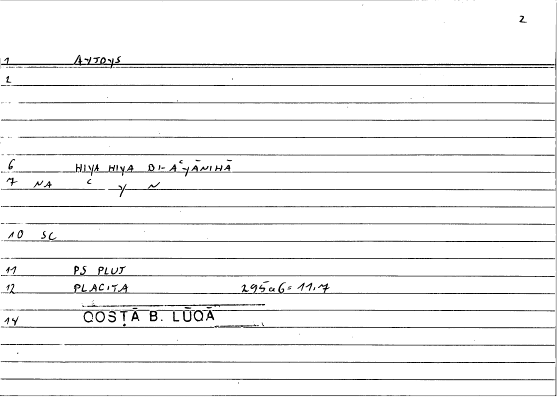 2
1 AYTOYS
2
6 HIYA HIYA BI-AʿYĀNIHĀ
7 NA ʿ y N
10 SC
11 PS PLUT
12 PLACITA 295a6 = 11.7
14 QOSṬĀ B. LŪQĀ